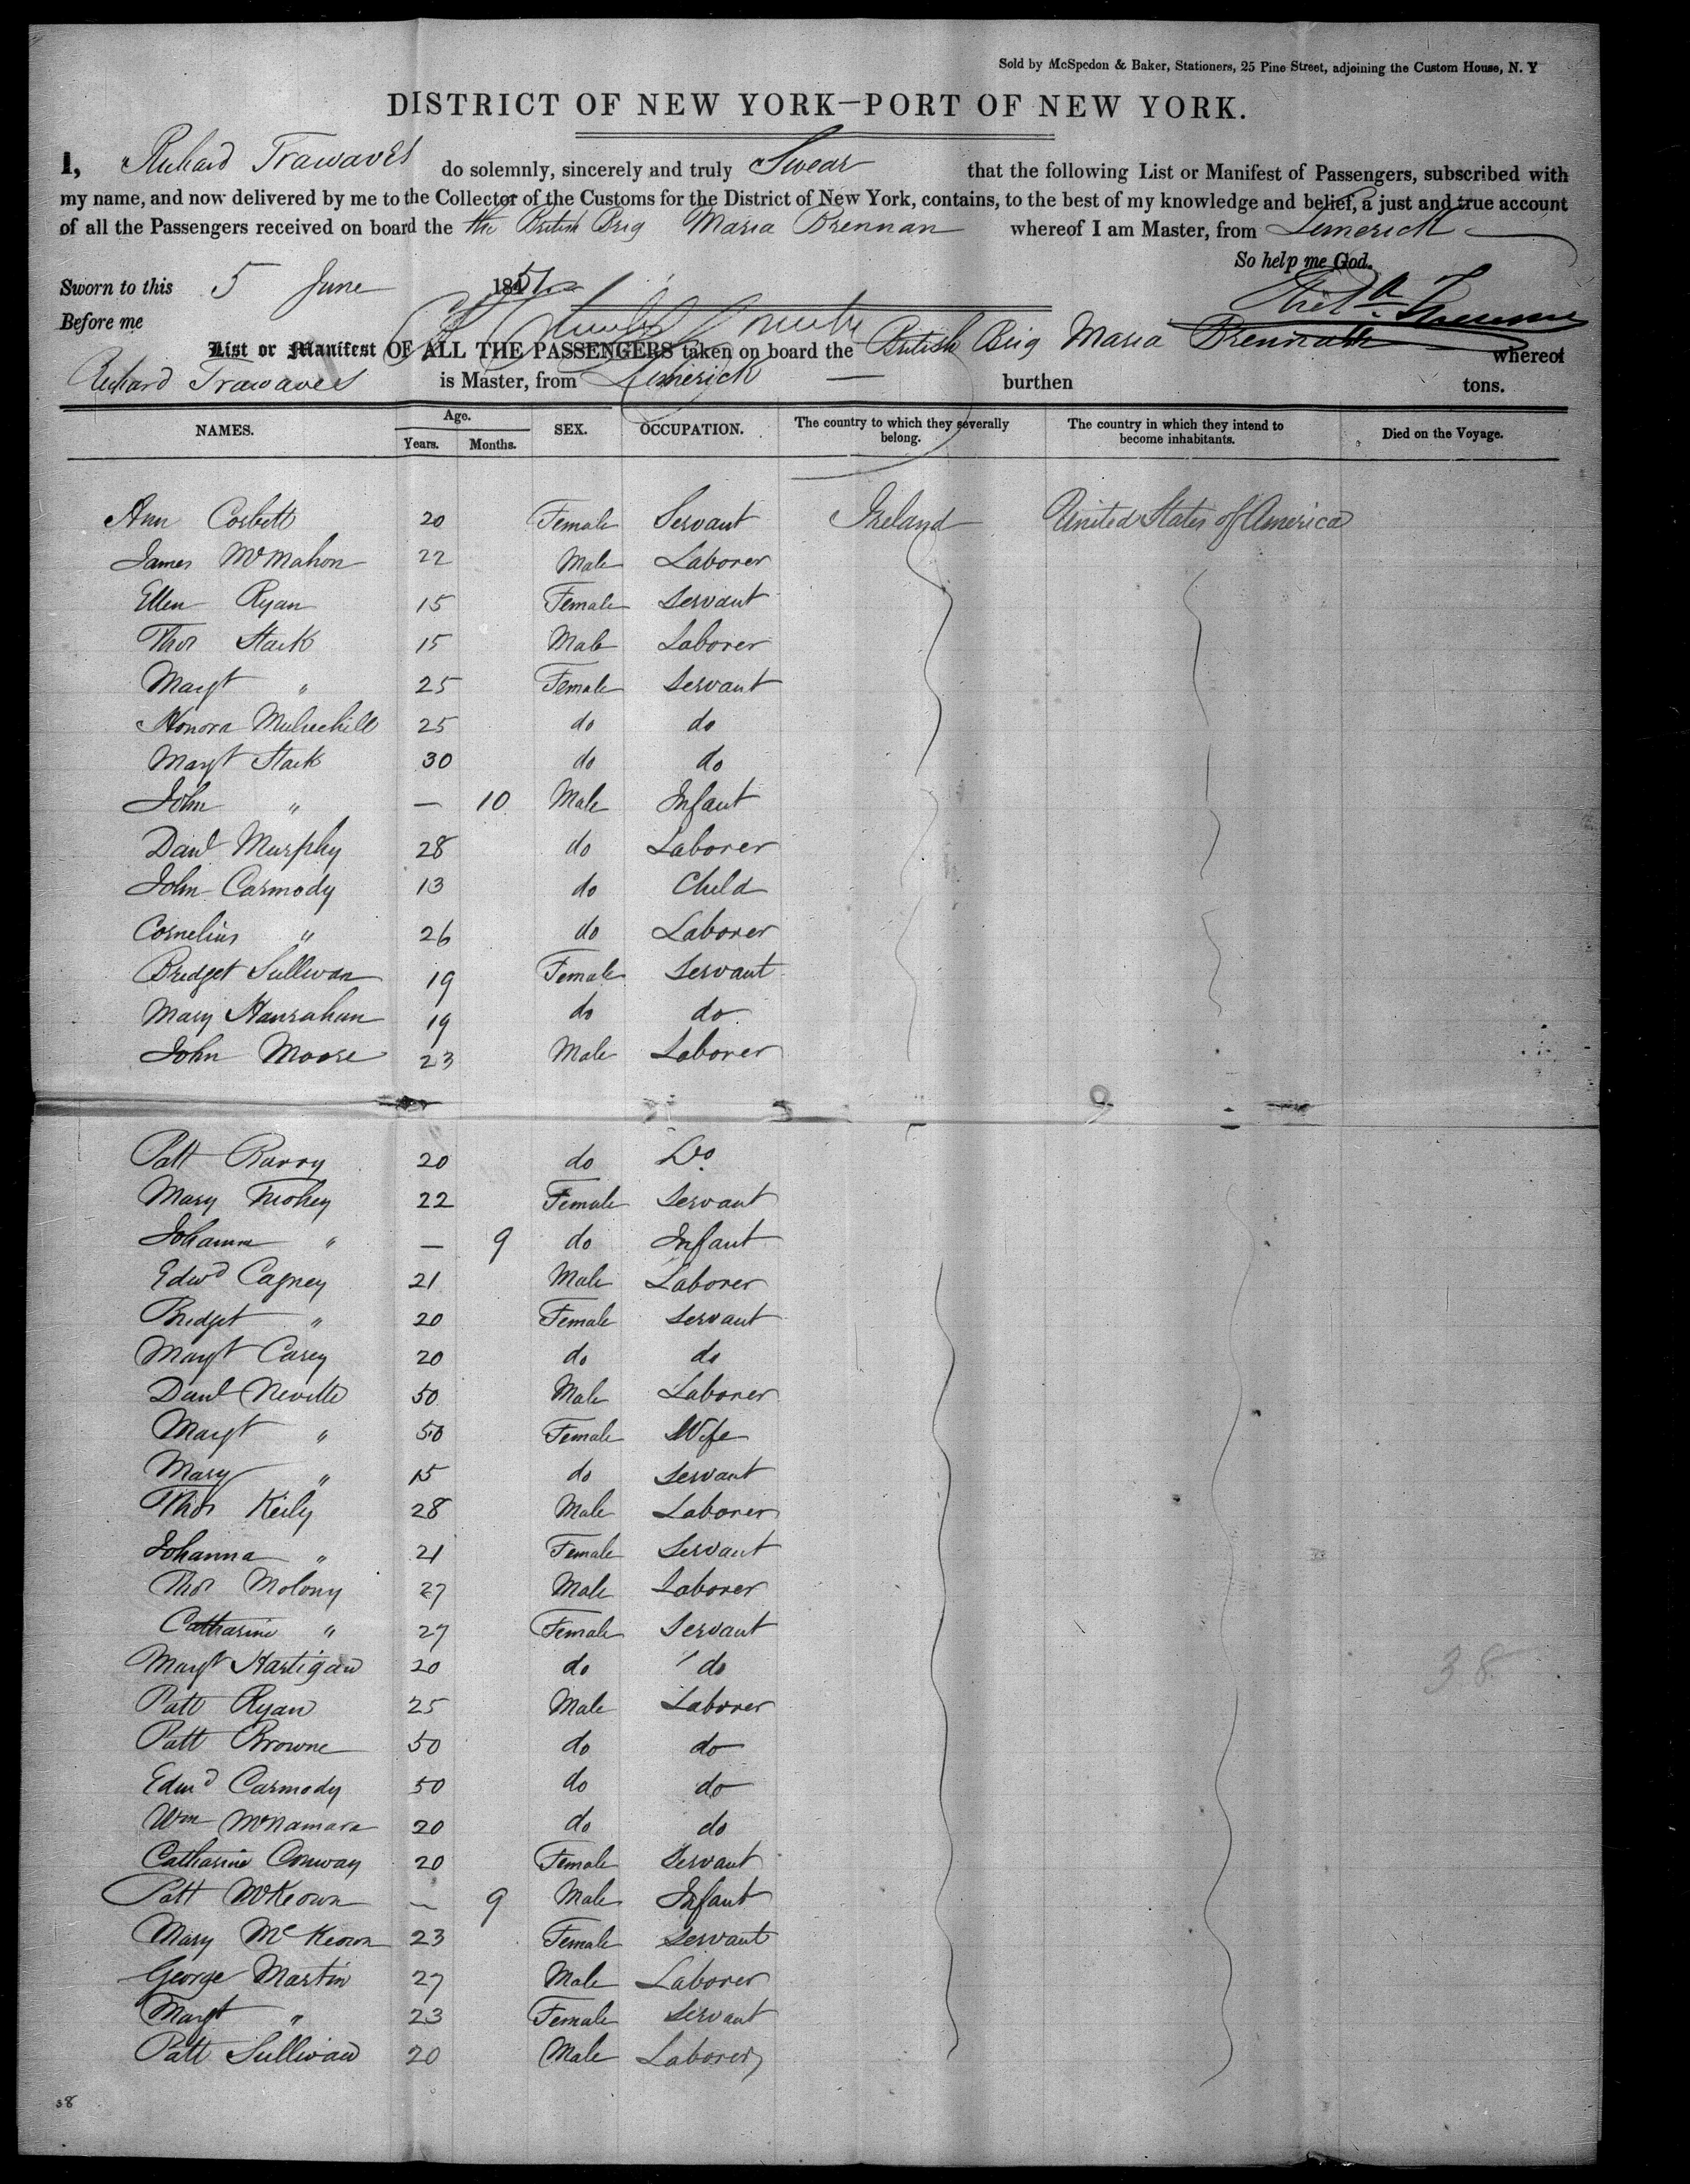 Sold by McSpedon & Baker, Stationers, 25 Pine Street, adjoining the Custom House, N. Y
DISTRICT OF NEW YORK—PORT OF NEW YORK.
I, Richard Trawaves do solemnly, sincerely and truly Swear that the following List or Manifest of Passengers, subscribed with
my name, and now delivered by me to the Collector of the Customs for the District of New York, contains, to the best of my knowledge and belief, a just and true account
of all the Passengers received on board the the British Brig Maria Brennan whereof I am Master, from Limerick
So help me God.
Sworn to this 5 June 1851
Before me
List or Manifest OF ALL THE PASSENGERS taken on board the British Brig Maria Brennan whereof
Richard Trawaves is Master, from Limerick — burthen tons.
NAMES. Age. Years. Months. SEX. OCCUPATION. The country to which they severally belong. The country in which they intend to become inhabitants. Died on the Voyage.
Ann Corbett 20 Female Servant Ireland United States of America
James McMahon 22 Male Laborer
Ellen Ryan 15 Female Servant
Thos Stack 15 Male Laborer
Margt " 25 Female Servant
Honora Mulvehill 25 do do
Margt Stack 30 do do
John " — 10 Male Infant
Danl Murphy 28 do Laborer
John Carmody 13 do Child
Cornelius " 26 do Laborer
Bridget Sullivan 19 Female Servant
Mary Hanrahan 19 do do
John Moore 23 Male Laborer
Patt Barry 20 do Do
Mary Tuohey 22 Female Servant
Johanna " — 9 do Infant
Edwd Cagney 21 Male Laborer
Bridget " 20 Female Servant
Margt Carey 20 do do
Danl Neville 50 Male Laborer
Margt " 50 Female Wife
Mary " 15 do Servant
Thos Keily 28 Male Laborer
Johanna " 21 Female Servant
Thos Molony 27 Male Laborer
Catharine " 27 Female Servant
Margt Hartigan 20 do do
Patt Ryan 25 Male Laborer
38
Patt Browne 50 do do
Edwd Carmody 50 do do
Wm McNamara 20 do do
Catharine Conway 20 Female Servant
Patt McKeown — 9 Male Infant
Mary McKeown 23 Female Servant
George Martin 27 Male Laborer
Margt " 23 Female Servant
Patt Sullivan 20 Male Laborer
38